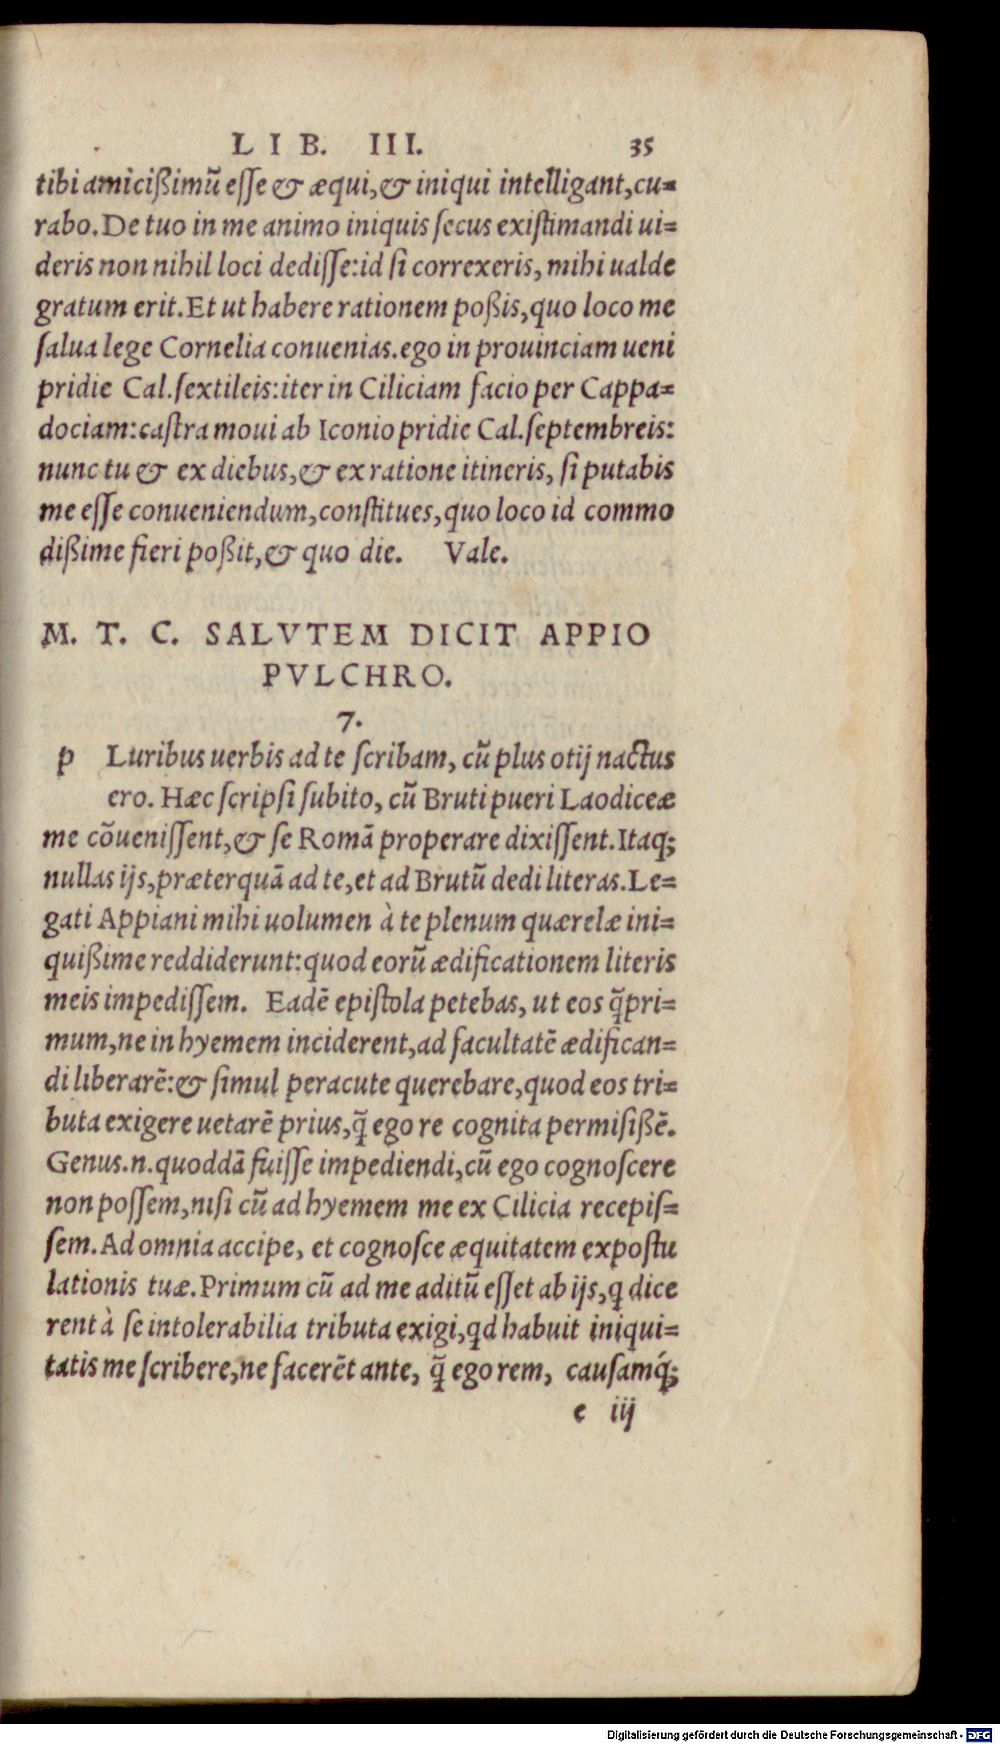 LIB. III. 35
tibi amicißimũ eſſe & æqui, & iniqui intelligant, cu=
rabo. De tuo in me animo iniquis ſecus exiſtimandi ui=
deris non nihil loci dediſſe: id ſi correxeris, mihi ualde
gratum erit. Et ut habere rationem poßis, quo loco me
ſalua lege Cornelia conuenias. ego in prouinciam ueni
pridie Cal. ſextileis: iter in Ciliciam facio per Cappa=
dociam: caſtra moui ab Iconio pridie Cal. ſeptembreis:
nunc tu & ex diebus, & ex ratione itineris, ſi putabis
me eſſe conueniendum, conſtitues, quo loco id commo
dißime fieri poßit, & quo die. Vale.
M. T. C. SALVTEM DICIT APPIO
PVLCHRO.
7.
p Luribus uerbis ad te ſcribam, cũ plus otij nactus
ero. Hæc ſcripſi ſubito, cũ Bruti pueri Laodiceæ
me cõueniſſent, & ſe Romã properare dixiſſent. Itaq;
nullas ijs, præterquã ad te, et ad Brutũ dedi literas. Le=
gati Appiani mihi uolumen à te plenum quærelæ ini=
quißime reddiderunt: quod eorũ ædificationem literis
meis impediſſem. Eadẽ epiſtola petebas, ut eos q̃pri=
mum, ne in hyemem inciderent, ad facultatẽ ædifican=
di liberarẽ: & ſimul peracute querebare, quod eos tri=
buta exigere uetarẽ prius, q̃ ego re cognita permiſißẽ.
Genus .n. quoddã fuiſſe impediendi, cũ ego cognoſcere
non poſſem, niſi cũ ad hyemem me ex Cilicia recepiſ=
ſem. Ad omnia accipe, et cognoſce æquitatem expoſtu
lationis tuæ. Primum cũ ad me aditũ eſſet ab ijs, q dice
rent à ſe intolerabilia tributa exigi, qd habuit iniqui=
tatis me ſcribere, ne facerẽt ante, q̃ ego rem, causamq́;
e iij
Digitalisierung gefördert durch die Deutsche Forschungsgemeinschaft - DFG